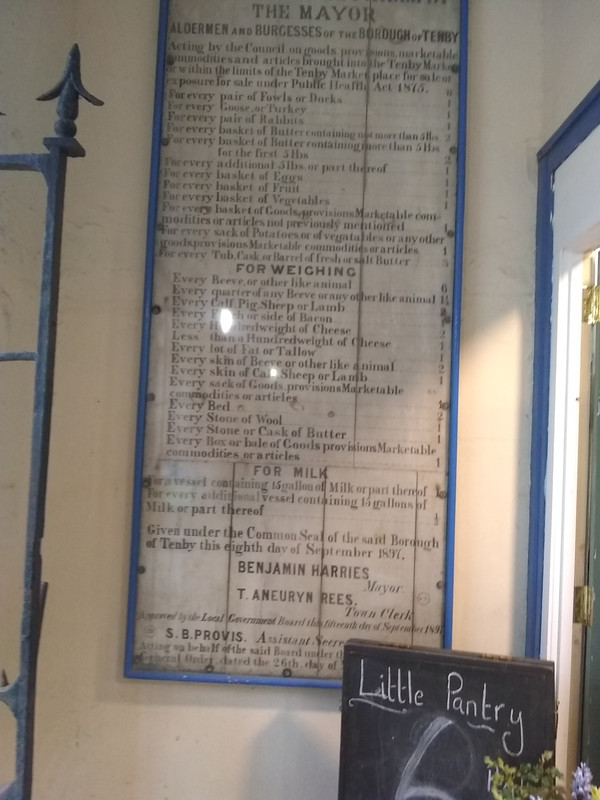 THE MAYOR
ALDERMEN AND BURGESSES OF THE BOROUGH OF TENBY
Acting by the Council on goods, provisions, marketable
commodities and articles brought into the Tenby Market
or within the limits of the Tenby Market place for sale or
exposure for sale under Public Health Act 1875.
For every pair of Fowls or Ducks 1
For every Goose, or Turkey 1
For every pair of Rabbits 1
For every basket of Butter containing not more than 5 lbs
For every basket of Butter containing more than 5 lbs
for the first 5 lbs 2
For every additional 5 lbs. or part thereof 1
For every basket of Eggs 1
For every basket of Fruit 1
For every basket of Vegetables 1
For every basket of Goods, provisions Marketable com-
modities or articles not previously mentioned 1
For every sack of Potatoes or of vegatables or any other
goods provisions Marketable commodities or articles 1
For every Tub, Cask or Barrel of fresh or salt Butter 3
FOR WEIGHING
Every Beeve, or other like animal 6
Every quarter of any Beeve or any other like animal 1½
Every Calf Pig Sheep or Lamb
Every or side of Bacon
Every Hundredweight of Cheese 2
Less than a Hundredweight of Cheese 1
Every lot of Fat or Tallow 1
Every skin of Beeve or other like animal 2
Every skin of Calf Sheep or Lamb 1
Every sack of Goods, provisions Marketable
commodities or articles 1
Every Bed 2
Every Stone of Wool 1
Every Stone or Cask of Butter 1
Every Box or bale of Goods provisions Marketable
commodities or articles 1
FOR MILK
For a vessel containing 15 gallon of Milk or part therof
For every additional vessel containing 15 gallons of
Milk or part thereof ½
Given under the Common Seal of the said Borough
of Tenby this eighth day of September 1897.
BENJAMIN HARRIES
Mayor
T. ANEURYN REES,
Town Clerk
Approved by the Local Government Board this fifteenth day of September 189
S. B. PROVIS. Assistant Secre
Acting on behalf of the said Board under th
General Order, dated the 26th. day of
Little Pantry